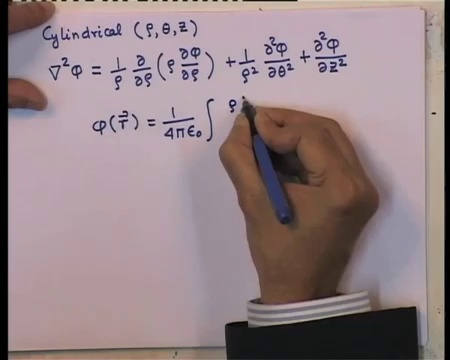 Cylindrical (ρ, θ, z)
∇²φ = 1/ρ ∂/∂ρ (ρ ∂φ/∂ρ) + 1/ρ² ∂²φ/∂θ² + ∂²φ/∂z²
φ(r⃗) = 1/4πε₀ ∫ ρ